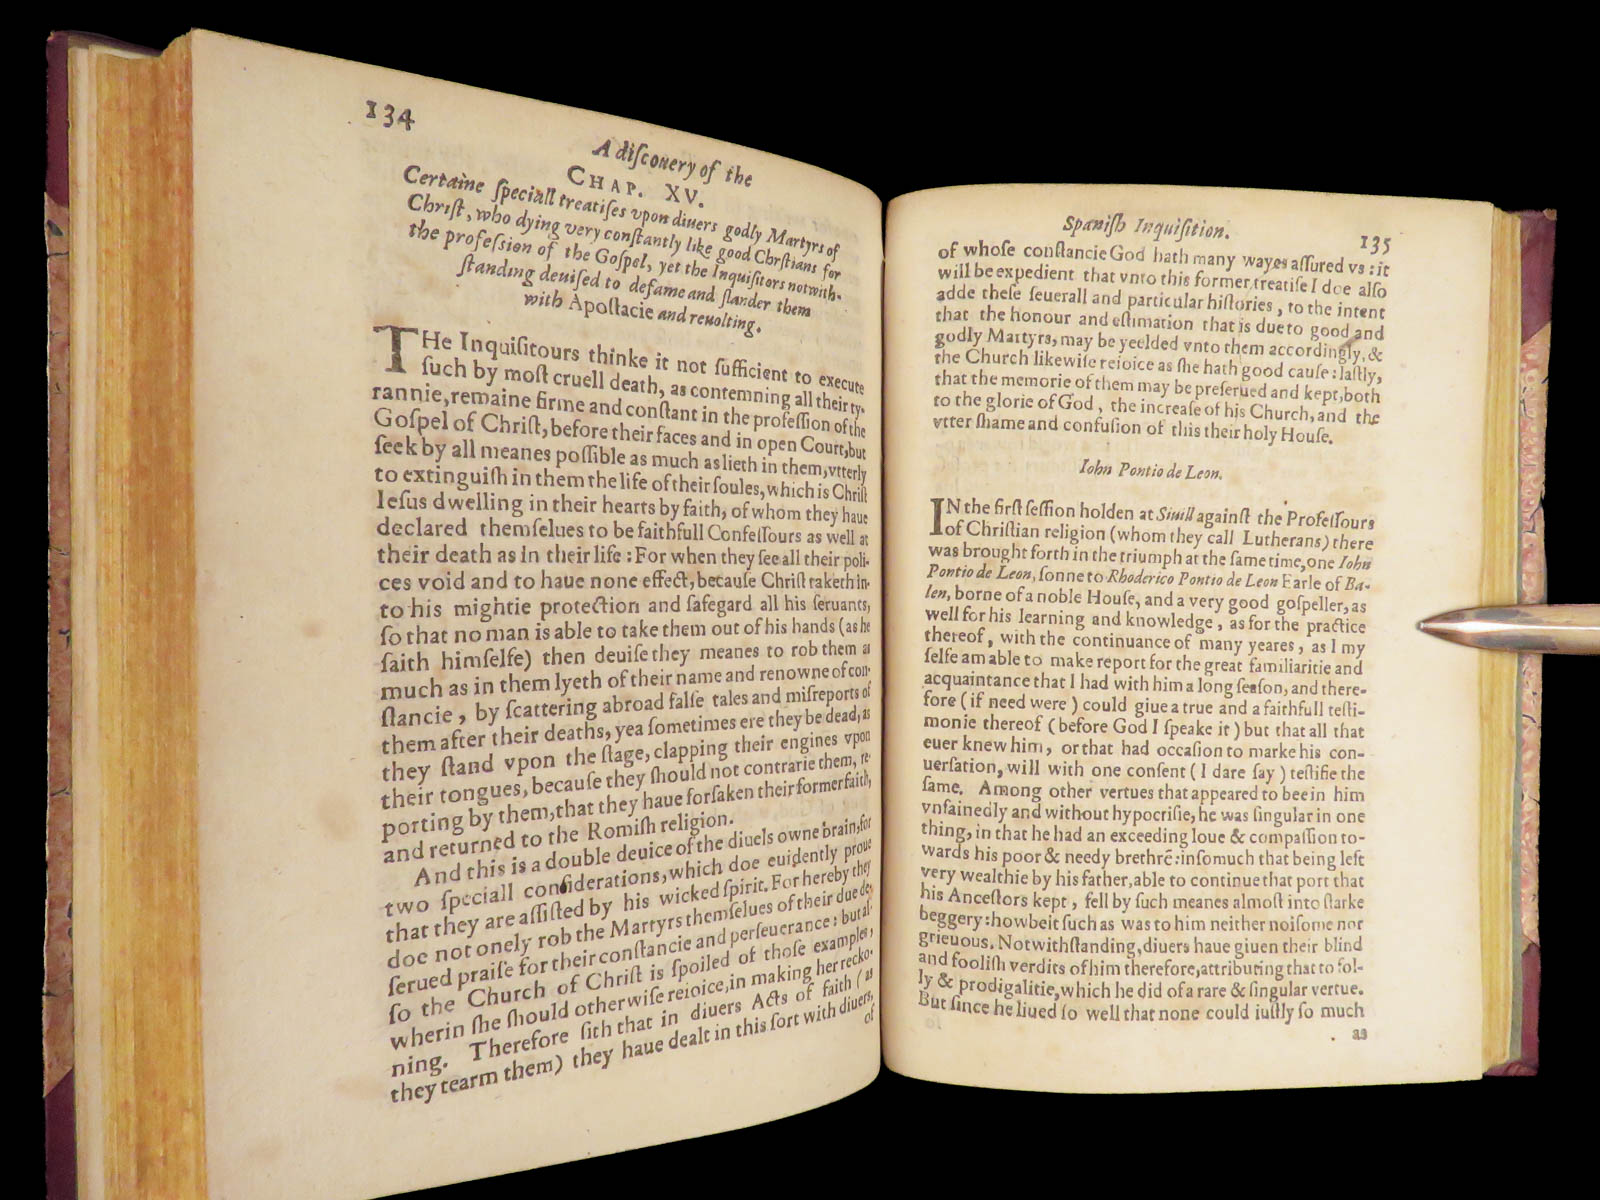 134
A diſcouery of the
CHAP. XV.
Certaine ſpeciall treatiſes vpon diuers godly Martyrs of
Chriſt, who dying very conſtantly like good Chrſtians for
the profeſsion of the Goſpel, yet the Inquiſitors notwith-
ſtanding deuiſed to defame and ſlander them
with Apoſtacie and reuolting.
THe Inquiſitours thinke it not ſufficient to execute
ſuch by moſt cruell death, as contemning all their ty-
rannie, remaine firme and conſtant in the profeſſion of the
Goſpel of Chriſt, before their faces and in open Court, but
ſeek by all meanes poſſible as much as lieth in them, vtterly
to extinguiſh in them the life of their ſoules, which is Chriſt
Ieſus dwelling in their hearts by faith, of whom they haue
declared themſelues to be faithfull Confeſſours as well at
their death as in their life : For when they ſee all their poli-
ces void and to haue none effect, becauſe Chriſt taketh in-
to his mightie protection and ſafegard all his ſeruants,
ſo that no man is able to take them out of his hands (as he
ſaith himſelfe) then deuiſe they meanes to rob them as
much as in them lyeth of their name and renowne of con-
ſtancie, by ſcattering abroad falſe tales and miſreports of
them after their deaths, yea ſometimes ere they be dead, as
they ſtand vpon the ſtage, clapping their engines vpon
their tongues, becauſe they ſhould not contrarie them, re-
porting by them, that they haue forſaken their former faith,
and returned to the Romiſh religion.
And this is a double deuice of the diuels owne brain, for
two ſpeciall conſiderations, which doe euidently proue
that they are aſſiſted by his wicked ſpirit. For hereby they
doe not onely rob the Martyrs themſelues of their due de-
ſerued praiſe for their conſtancie and perſeuerance : but al-
ſo the Church of Chriſt is ſpoiled of thoſe examples,
wherin ſhe ſhould otherwiſe reioice, in making her recko-
ning. Therefore ſith that in diuers Acts of faith (as
they tearm them) they haue dealt in this ſort with diuers,
of
Spaniſh Inquiſition.
135
of whoſe conſtancie God hath many wayes aſſured vs : it
will be expedient that vnto this former treatiſe I doe alſo
adde theſe ſeuerall and particular hiſtories, to the intent
that the honour and eſtimation that is due to good and
godly Martyrs, may be yeelded vnto them accordingly, &
the Church likewiſe reioice as ſhe hath good cauſe : laſtly,
that the memorie of them may be preſerued and kept, both
to the glorie of God, the increaſe of his Church, and the
vtter ſhame and confuſion of this their holy Houſe.
Iohn Pontio de Leon.
IN the firſt ſeſſion holden at Siuill againſt the Profeſſours
of Chriſtian religion (whom they call Lutherans) there
was brought forth in the triumph at the ſame time, one Iohn
Pontio de Leon, ſonne to Rhoderico Pontio de Leon Earle of Ba-
len, borne of a noble Houſe, and a very good goſpeller, as
well for his learning and knowledge, as for the practice
thereof, with the continuance of many yeares, as I my
ſelfe am able to make report for the great familiaritie and
acquaintance that I had with him a long ſeaſon, and there-
fore (if need were) could giue a true and a faithfull teſti-
monie thereof (before God I ſpeake it) but that all that
euer knew him, or that had occaſion to marke his con-
uerſation, will with one conſent (I dare ſay) teſtifie the
ſame. Among other vertues that appeared to bee in him
vnfainedly and without hypocriſie, he was ſingular in one
thing, in that he had an exceeding loue & compaſſion to-
wards his poor & needy brethrē: inſomuch that being left
very wealthie by his father, able to continue that port that
his Anceſtors kept, fell by ſuch meanes almoſt into ſtarke
beggery : howbeit ſuch as was to him neither noiſome nor
grieuous. Notwithſtanding, diuers haue giuen their blind
and fooliſh verdits of him therefore, attributing that to fol-
ly & prodigalitie, which he did of a rare & ſingular vertue.
But ſince he liued ſo well that none could iuſtly ſo much
as